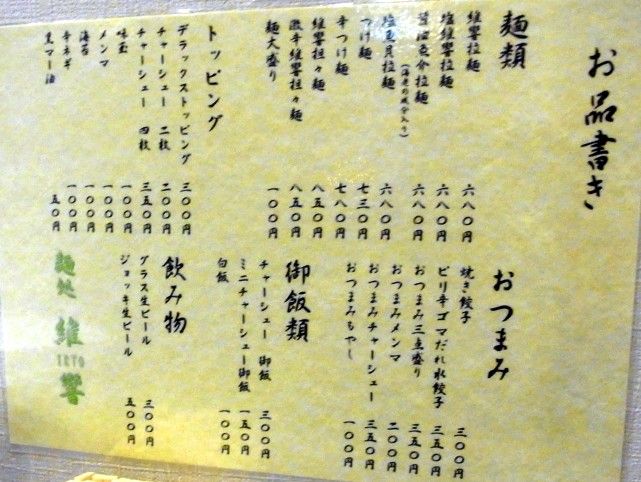 お品書き
麺類
維響拉麺 六八〇円
塩維響拉麺 六八〇円
醤油魚介拉麺 六八〇円
塩魚貝拉麺(海老の成分入り) 六八〇円
つけ麺 七三〇円
辛つけ麺 七八〇円
維響担々麺 八五〇円
激辛維響担々麺 八五〇円
麺大盛り 一〇〇円
トッピング
デラックストッピング 三〇〇円
チャーシュー 二枚 二〇〇円
チャーシュー 四枚 三五〇円
味玉 一〇〇円
メンマ 一〇〇円
海苔 一〇〇円
辛ネギ 一〇〇円
黒マー油 五〇円
おつまみ
焼き餃子 三〇〇円
ピリ辛ゴマだれ水餃子 三五〇円
おつまみ三点盛り 三五〇円
おつまみメンマ 二〇〇円
おつまみチャーシュー 三五〇円
おつまみもやし 一〇〇円
御飯類
チャーシュー 御飯 三〇〇円
ミニチャーシュー御飯 一五〇円
白飯 一〇〇円
飲み物
グラス生ビール 三〇〇円
ジョッキ生ビール 五〇〇円
麺処 維響